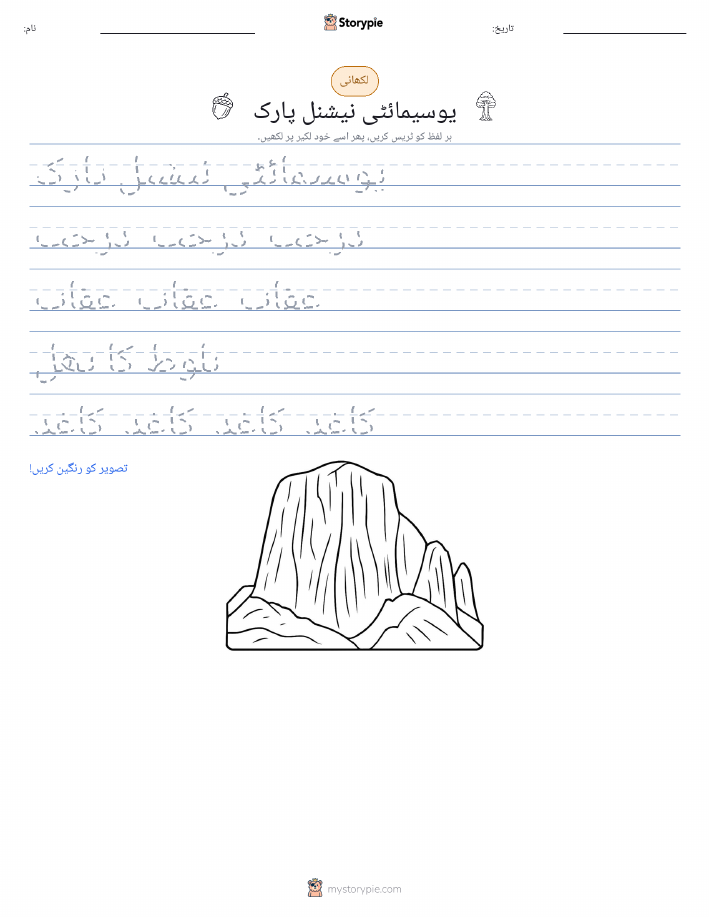 Storypie
نام:
تاریخ:
لکھائی
یوسیمائٹی نیشنل پارک
ہر لفظ کو ٹریس کریں، پھر اسے خود لکیر پر لکھیں۔
یوسیمائٹی نیشنل پارک
درخت درخت درخت
عقاب عقاب عقاب
بلوط کا پھل
کاغذ کاغذ کاغذ کاغذ
تصویر کو رنگین کریں!
mystorypie.com